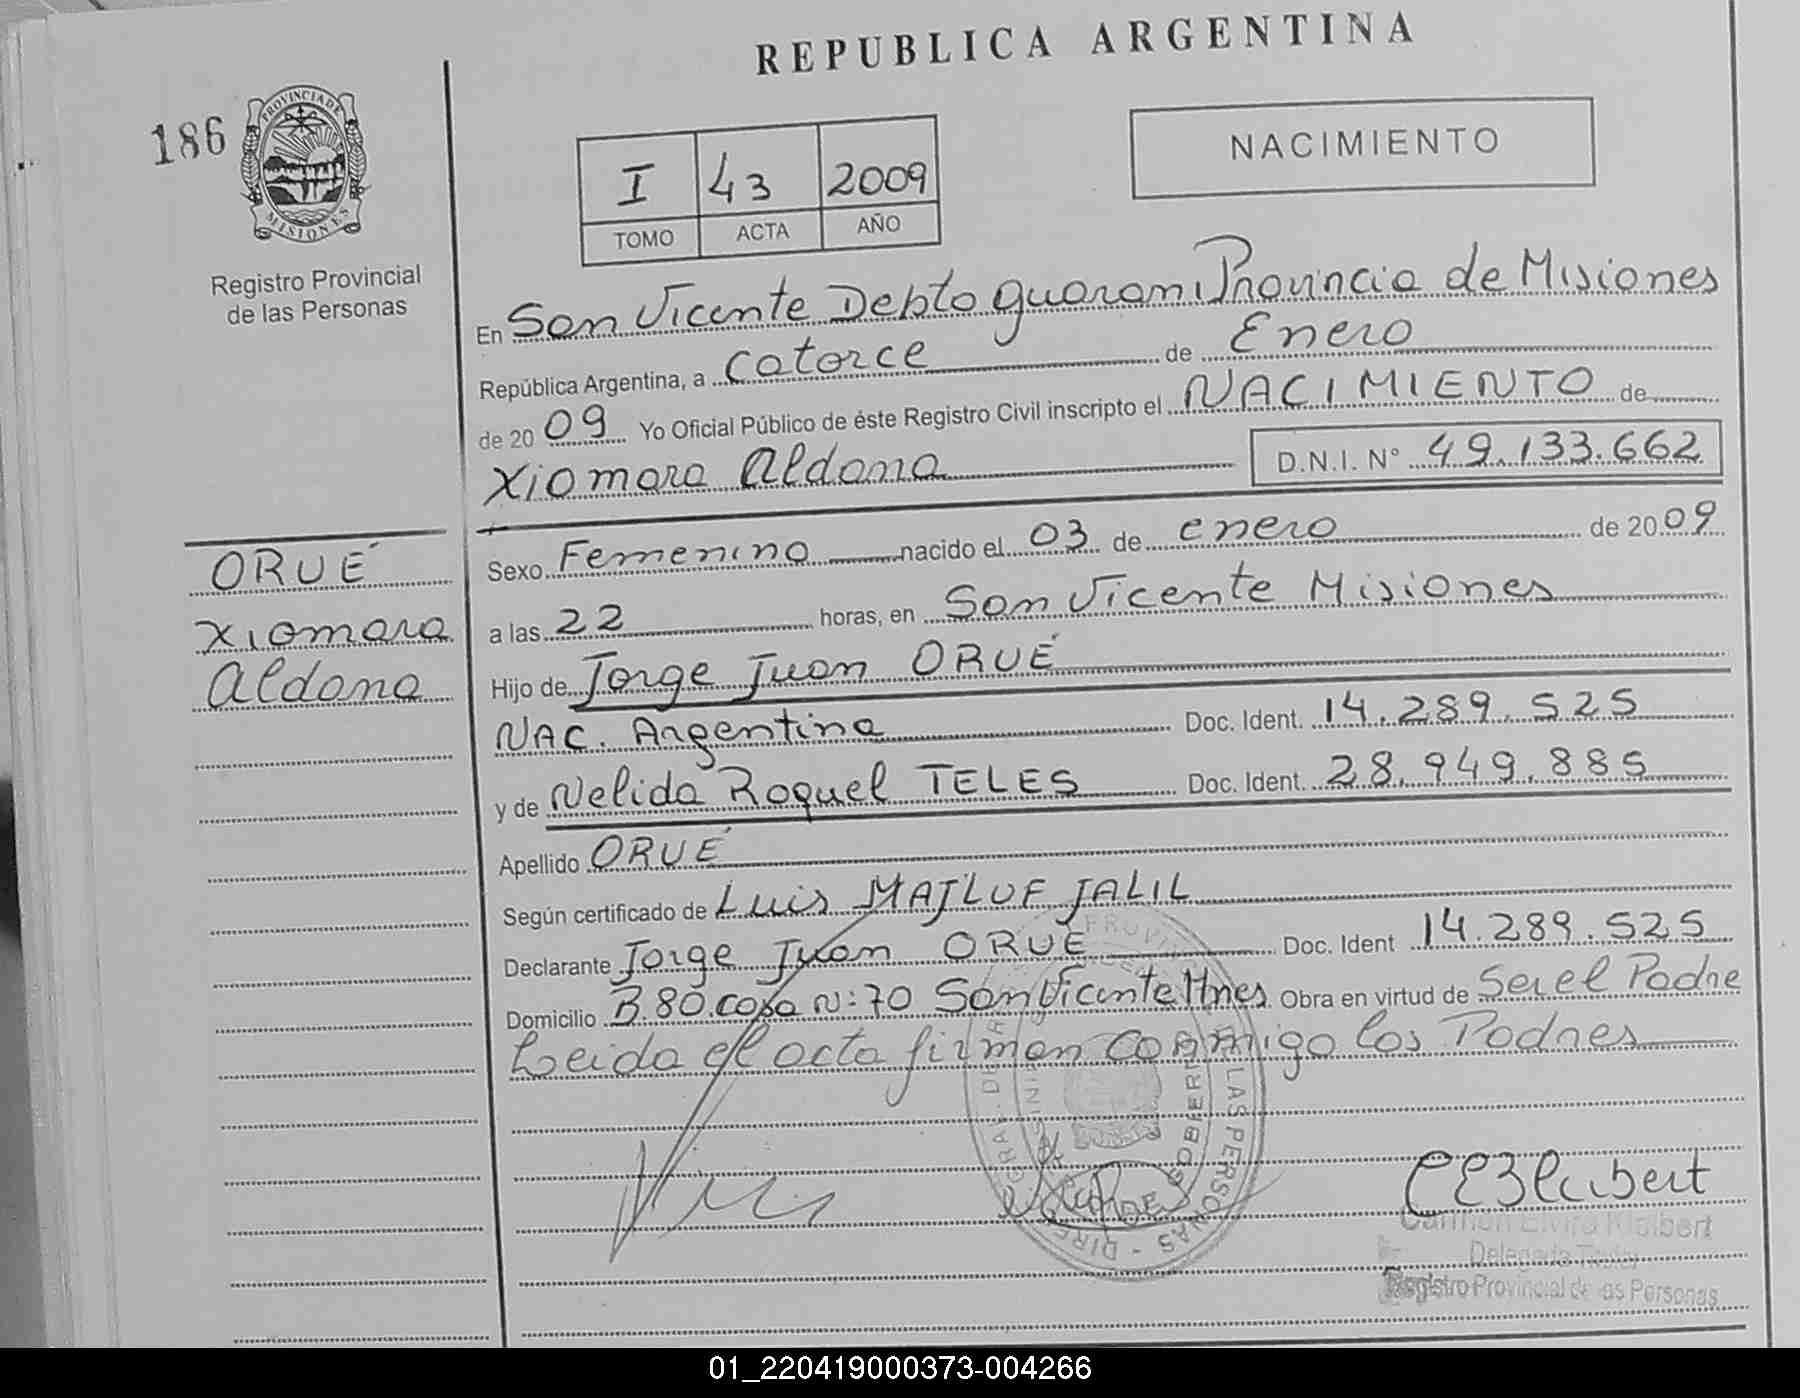 REPUBLICA ARGENTINA
186
PROVINCIA DE MISIONES
Registro Provincial
de las Personas
NACIMIENTO
I 43 2009
TOMO ACTA AÑO
En San Vicente Depto guarani Provincia de Misiones
República Argentina, a catorce de Enero
de 2009 Yo Oficial Público de éste Registro Civil inscripto el NACIMIENTO de
Xiomara Aldana D.N.I. N° 49.133.662
ORUÉ
Xiomara
Aldana
Sexo Femenino nacido el 03 de enero de 2009
a las 22 horas, en San Vicente Misiones
Hijo de Jorge Juan ORUÉ
NAC. Argentina Doc. Ident. 14.289.525
y de Nelida Raquel TELES Doc. Ident. 28.949.885
Apellido ORUÉ
Según certificado de Luis MAJLUF JALIL
Declarante Jorge Juan ORUÉ Doc. Ident 14.289.525
Domicilio B.80.casa N:70 San Vicente Mnes Obra en virtud de Ser el Padre
Leida el acta firman conmigo los Padres
CEKlabert
Carmen Elvira Klabert
Delegada Titular
Registro Provincial de las Personas
01_220419000373-004266